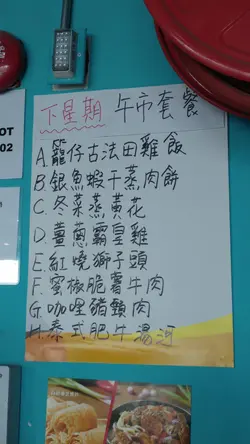 OT
02
下星期 午市套餐
A.籠仔古法田雞飯
B.銀魚蝦干蒸肉餅
C.冬菜蒸黃花
D.薑蔥霸皇雞
E.紅燒獅子頭
F.蜜椒脆薯牛肉
G.咖哩豬頸肉
H.泰式肥牛湯河